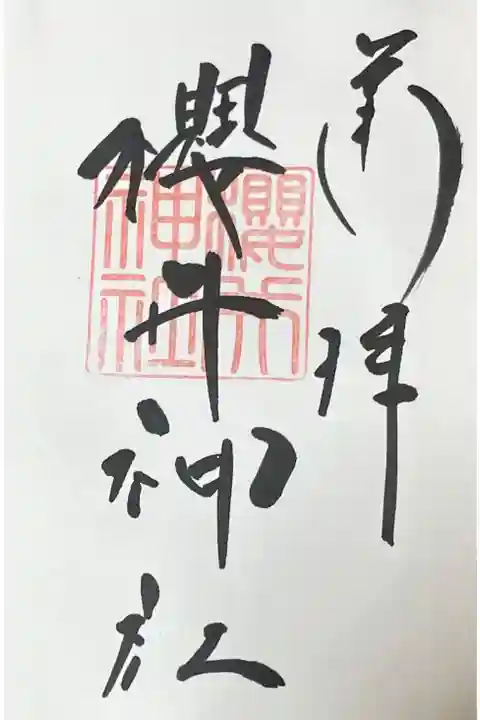 奉拝
櫻井神社
櫻井
神社